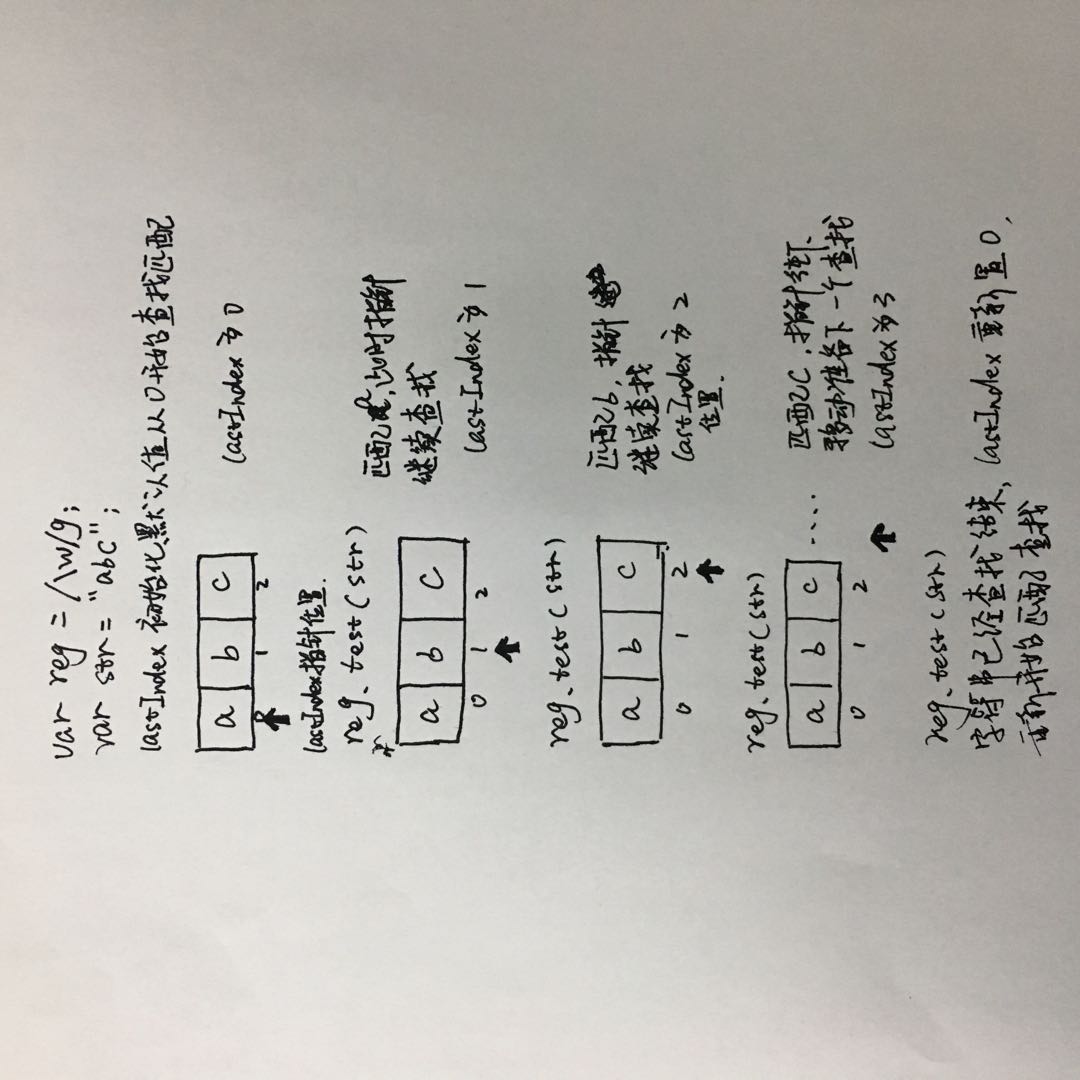 var reg = /\w/g;
var str = "abc";
lastIndex 初始化,默认值从0开始查找匹配
a b c
0 1 2
lastIndex为0
lastIndex指针位置.
reg.test(str)
a b c
0 1 2
匹配了a,此时指针
继续查找
lastIndex为1
reg.test(str)
a b c
0 1 2
匹配了b,指针
继续查找
lastIndex为2
位置.
reg.test(str)
a b c ....
0 1 2
匹配了C,指针往下
移动准备下一个查找
lastIndex为3
reg.test(str)
字符串已经查找结束,lastIndex重新置0,
重新开始匹配了查找